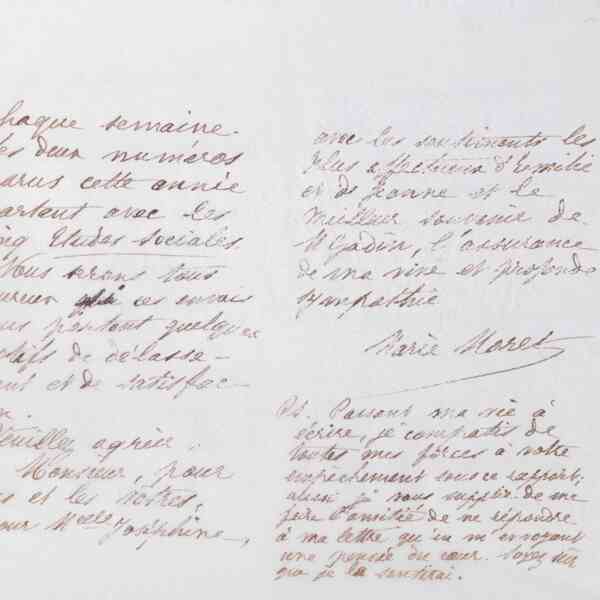 chaque semaine.
les deux numéros
parus cette année
partent avec les
Etudes sociales.
Nous serons tous
heureux si ces envois
vous portent quelques
motifs de délasse-
ment et de satisfac-
Veuillez agréer,
Monsieur, pour
et les vôtres,
pour Melle Joséphine,
avec les sentiments les
plus affectueux d'Emilie
et de Jeanne et le
meilleur souvenir de
M Godin, l'assurance
de ma vive et profonde
sympathie
Marie Moret
PS. Passant ma vie à
écrire, je compatis de
toutes mes forces à votre
empêchement sous ce rapport;
aussi je vous supplie de me
faire l'amitié de ne répondre
à ma lettre qu'en m'envoyant
une pensée du cœur. Soyez sûr
que je la sentirai.